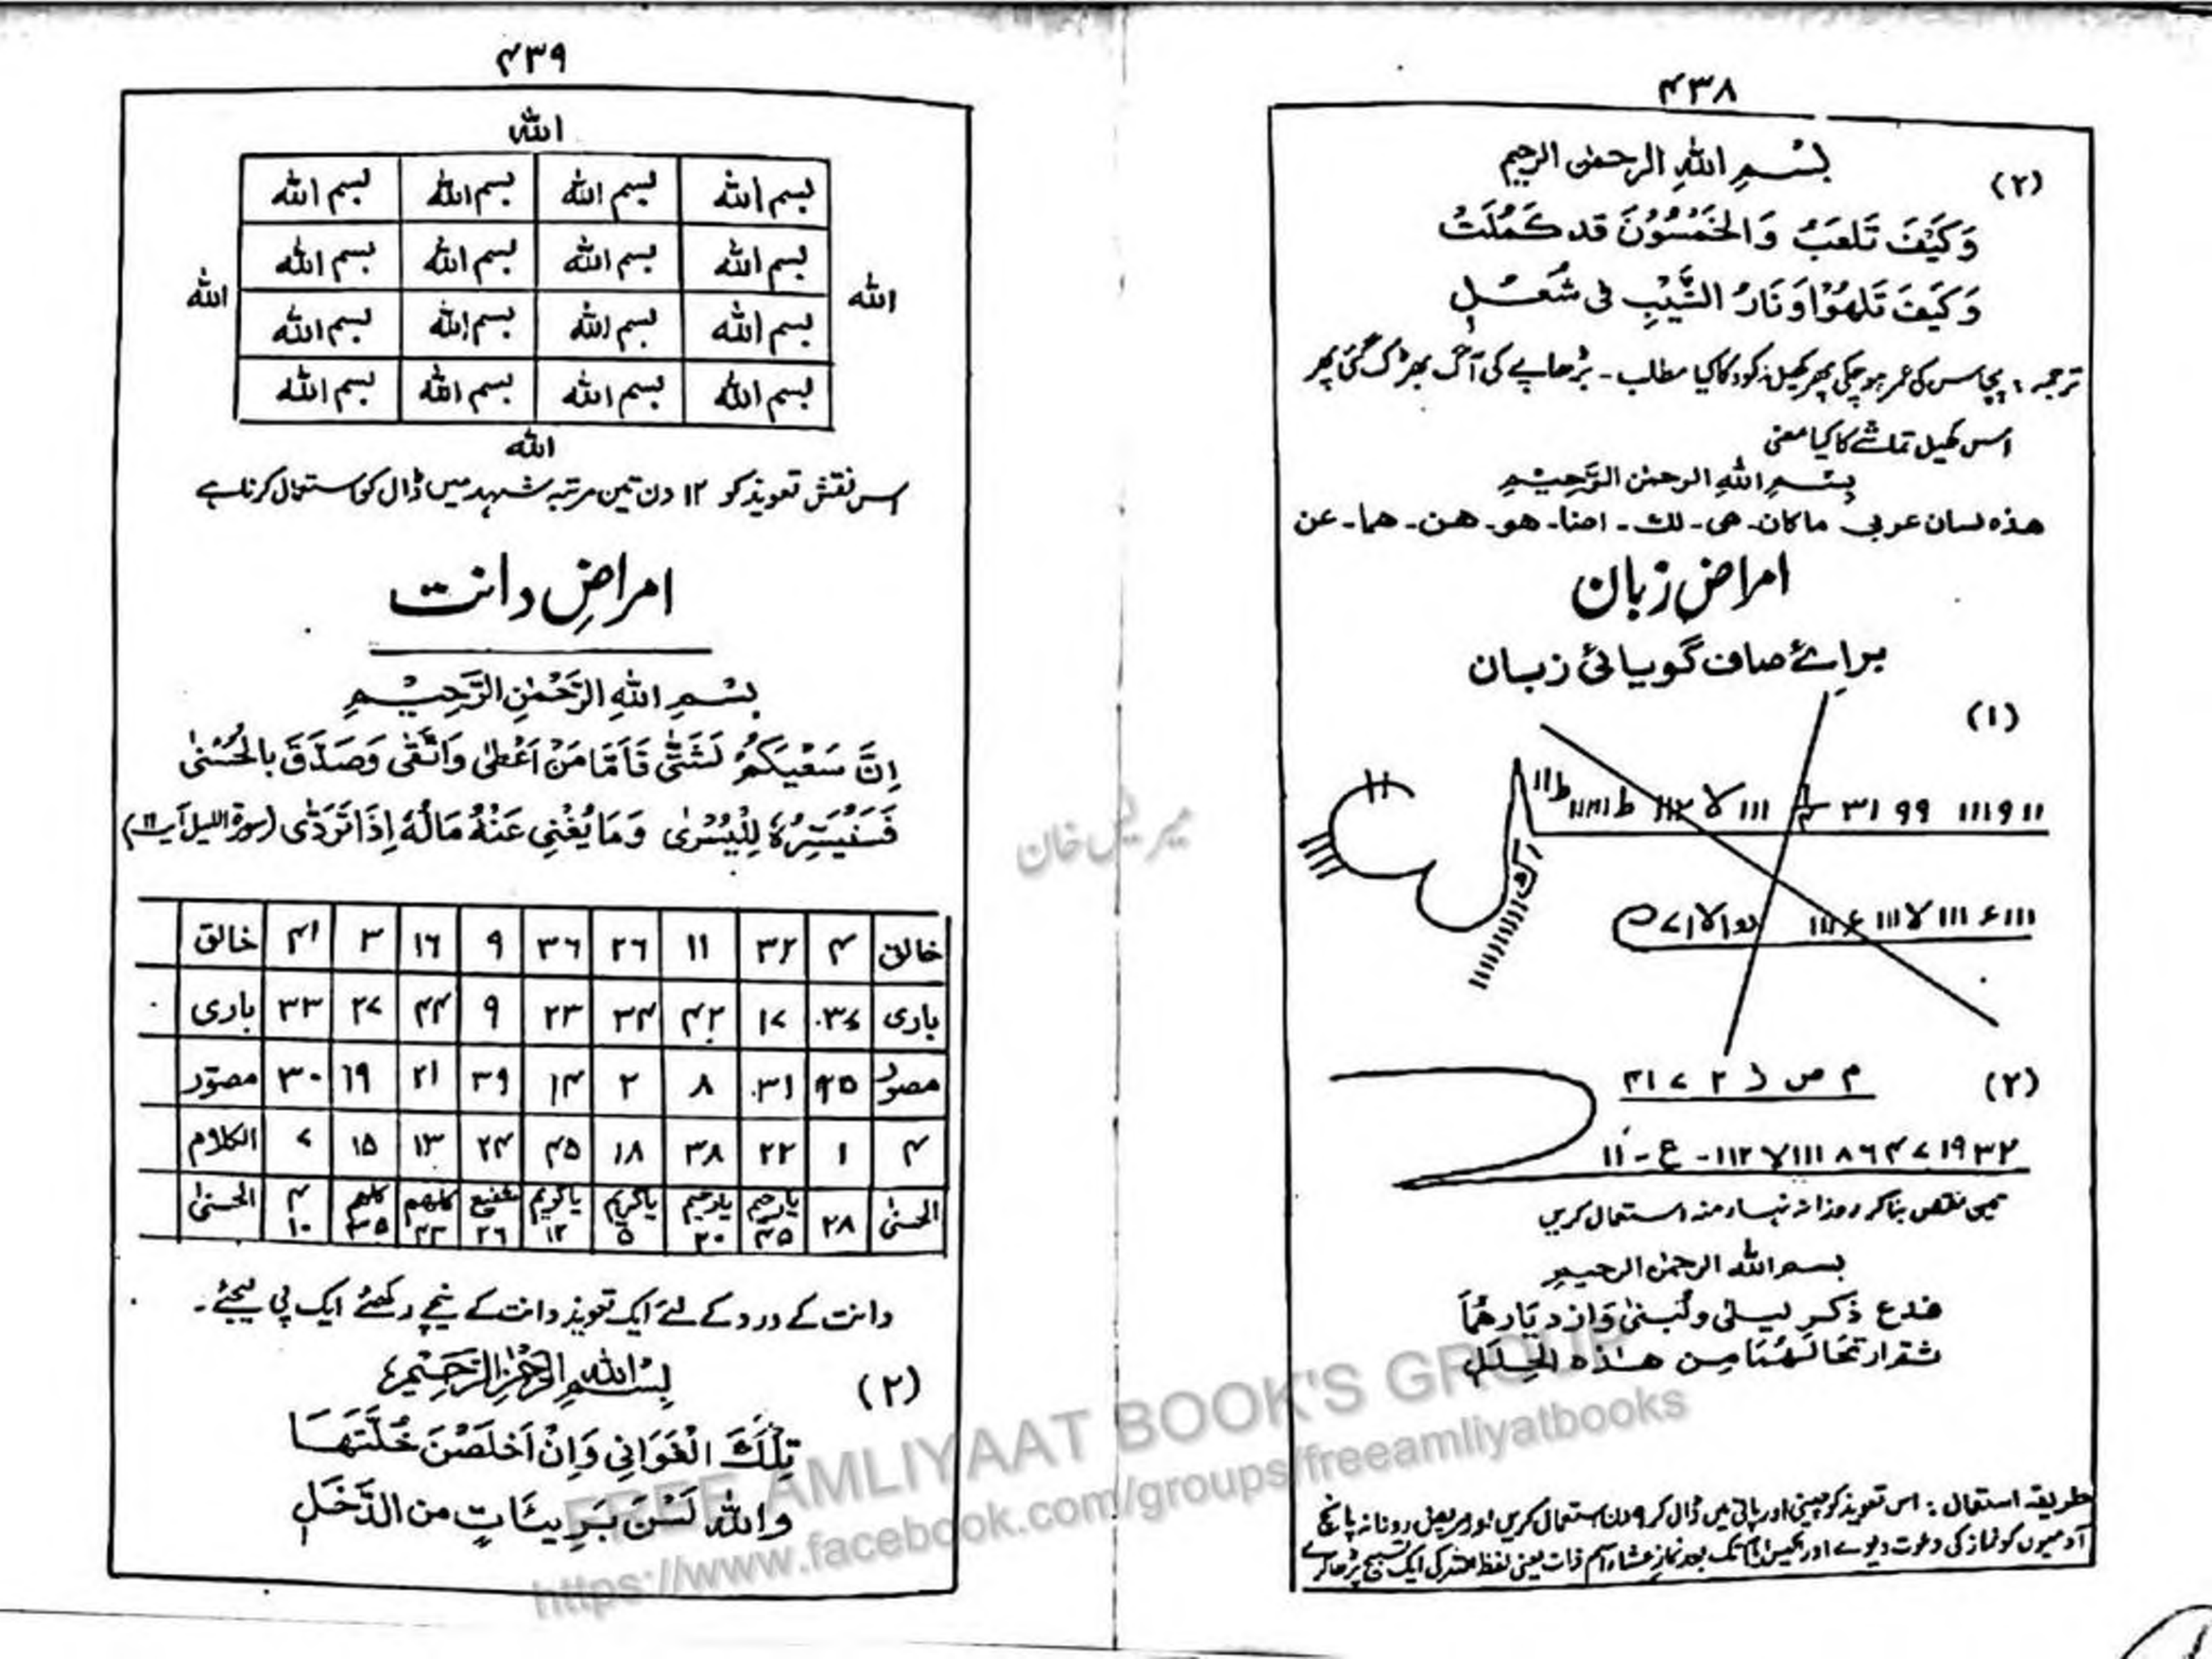 ۴۳۸
(۲)
بِسْمِ اللهِ الرحمٰن الرحیم
وَكَيْفَ تَلْعَبُ وَالْخَمْسُوْنَ قد كَمُلَتْ
وَكَيْفَ تَلهُوْا وَنَارُ الشَّيْبِ فى شُعَلٍ
ترجمہ: پچاس کی عمر ہوچکی پھر کھیل کود کا کیا مطلب - بڑھاپے کی آگ بھڑک گئی پھر
اس کھیل تماشے کا کیا معنی
بِسْمِ اللهِ الرحمٰن الرَّحِيْمِ
هذه لسان عربى ما كان - هى - لك - - هو - هن - هما - عن
امراضِ زبان
برائے صاف گویائی زبان
(۱)
(۲)
م ص ۲ ۷ ۳۱
تین نقش بناکر روزانہ نہار منہ استعمال کریں
بسم اللہ الرحمٰن الرحیم
فدع ذكر ليلى ولُبنىٰ وَازدِيَارهُمَا
هٰذه الحِلَلِ
طریقہ استعمال: اس تعویذ کو چینی اور پانی میں ڈال کر ۹ دن استعمال کریں اور مریض روزانہ پانچ
آدمیوں کو نماز کی دعوت دیوے اور بعد نماز عشاء اسم ذات یعنی لفظ کی ایک تسبیح پڑھا کرے
۴۳۹
الله
بسم الله بسم الله بسم الله بسم الله
الله بسم الله بسم الله بسم الله بسم الله الله
بسم الله بسم الله بسم الله بسم الله
بسم الله بسم الله بسم الله بسم الله
الله
اس نقش تعویذ کو ۱۲ دن تین مرتبہ شہد میں ڈال کو استعمال کرنا ہے
امراضِ دانت
بِسْمِ اللهِ الرَّحْمٰنِ الرَّحِيْمِ
اِنَّ سَعْيَكُمْ لَشَتّٰى فَاَمَّا مَنْ اَعْطٰى وَاتَّقٰى وَصَدَّقَ بِالْحُسْنٰى
فَسَنُيَسِّرُهٗ لِلْيُسْرٰى وَمَا يُغْنِى عَنْهُ مَالُهٗ اِذَا تَرَدّٰى (سورة الليل آيت ۱۱)
خالق ۴ ۳۲ ۱۱ ۲۶ ۳۶ ۹ ۱۶ ۳ ۴۱ خالق
باری ۳۷ ۱۷ ۴۲ ۳۴ ۲۳ ۹ ۴۴ ۲۷ ۳۳ باری
مصوّر ۲۵ ۳۱ ۸ ۲ ۱۴ ۳۹ ۲۱ ۱۹ ۳۰ مصوّر
۴ ۱ ۲۲ ۳۸ ۱۸ ۴۵ ۲۴ ۱۳ ۱۵ ۷ الکلام
الحسنیٰ ۲۸ یا رحیم ۴۵ یا رحیم ۲۰ یا کریم ۵ یا کریم ۱۲ شفیع ۲۶ کلھم ۴۳ کلھم ۳۵ ۴ ۱۰ الحسنیٰ
دانت کے درد کے لئے ایک تعویذ دانت کے نیچے رکھئے ایک پی لیجئے۔
(۲)
بِسْمِ اللهِ الرَّحْمٰنِ الرَّحِيْمِ
تِلْكَ الْغَوَانِي وَاِنْ اَخلَصْنَ خُلَّتَهَا
وَاللهِ لَسْنَ بَرِيئَاتٍ من الدَّخَلِ
میر یس خان
FREE AMLIYAAT BOOK'S GROUP
https://www.facebook.com/groups/freeamliyatbooks